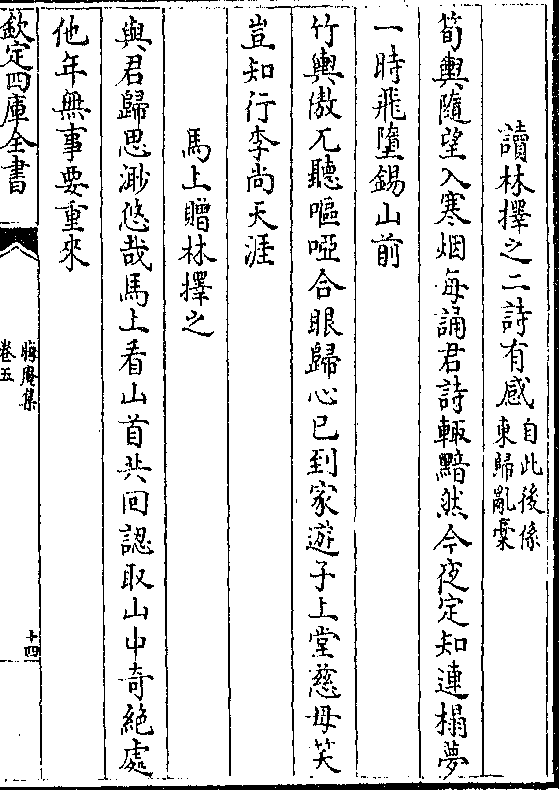 讀林擇之二詩有感自此後係
東歸亂稾
筍輿隨望入寒烟每誦君詩輒黯然今夜定知連榻夢
一時飛墮錫山前
竹輿傲兀聽嘔啞合眼歸心已到家遊子上堂慈母笑
豈知行李尚天涯
馬上贈林擇之
與君歸思渺悠哉馬上看山首共回認取山中奇絶處
他年無事要重來
欽定四庫全書
晦庵集
卷五
十四